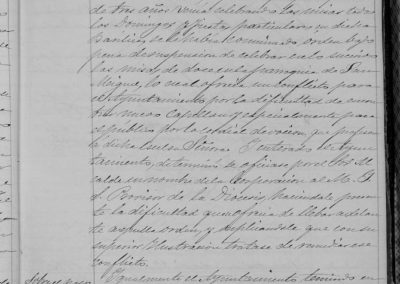 de tres años venia celebrando las misas todos
los Domingos y fiestas particulares en dicha
Basilica se le habia comunicado orden bajo
pena de suspension de celebrar en lo sucesivo
las misas de doce en la parroquia de San
Miguel, lo cual ofrecia un conflicto para
el Ayuntamiento por la dificultad de encon
trar nuevo Capellan y especialmente para
el público por la cordial devocion que profesa
á dicha Señora. Y enterado el Ayun
tamiento, determinó se oficiase por el Sr. Al
calde en nombre de la Corporacion al M. I.
S. Provisor de la Diocesis, haciendole presen
te la dificultad que ofrecia de llebar adelan
te aquella orden, y suplicandole que con su
superior ilustracion tratase de remediar ese
conflicto.
Igualmente el Ayuntamiento teniendo en